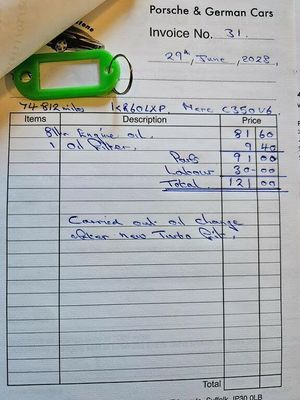 Porsche & German Cars
Invoice No. 31.
29th June, 2023.
74812miles KR60LXP. Merc C350V6
Items Description Price
8ltr Engine oil. 81 60
1 Oil Filter. 9 40
Parts 91 00
Labour 30-00
Total. 121 00
Carried out oil change
after new Turbo fit.
Total
Suffolk, IP30 0LB